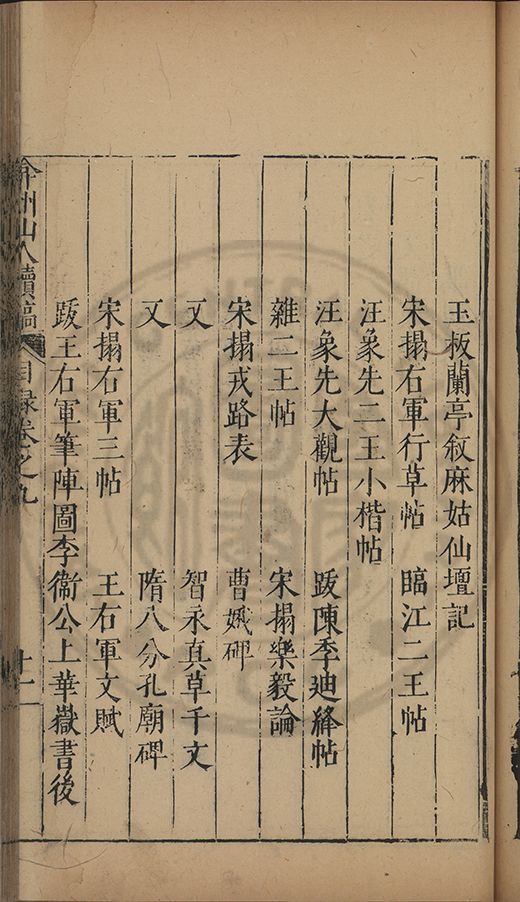 玉板蘭亭叙麻姑仙壇記
宋搨右軍行草帖 臨江二王帖
汪象先二王小楷帖
汪象先大觀帖 跋陳李廸絳帖
雜二王帖 宋搨樂毅論
宋搨戎路表 曹娥碑
又 智永真草千文
又 隋八分孔廟碑
宋搨右軍三帖 王右軍文賦
跋王右軍筆陣圖李衞公上華嶽書後
弇州山人續稿 目録卷之九 十一